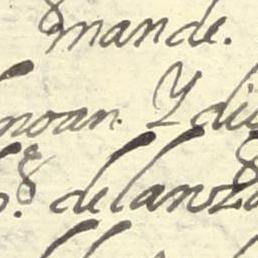 mande.
noan. Y di
delanza